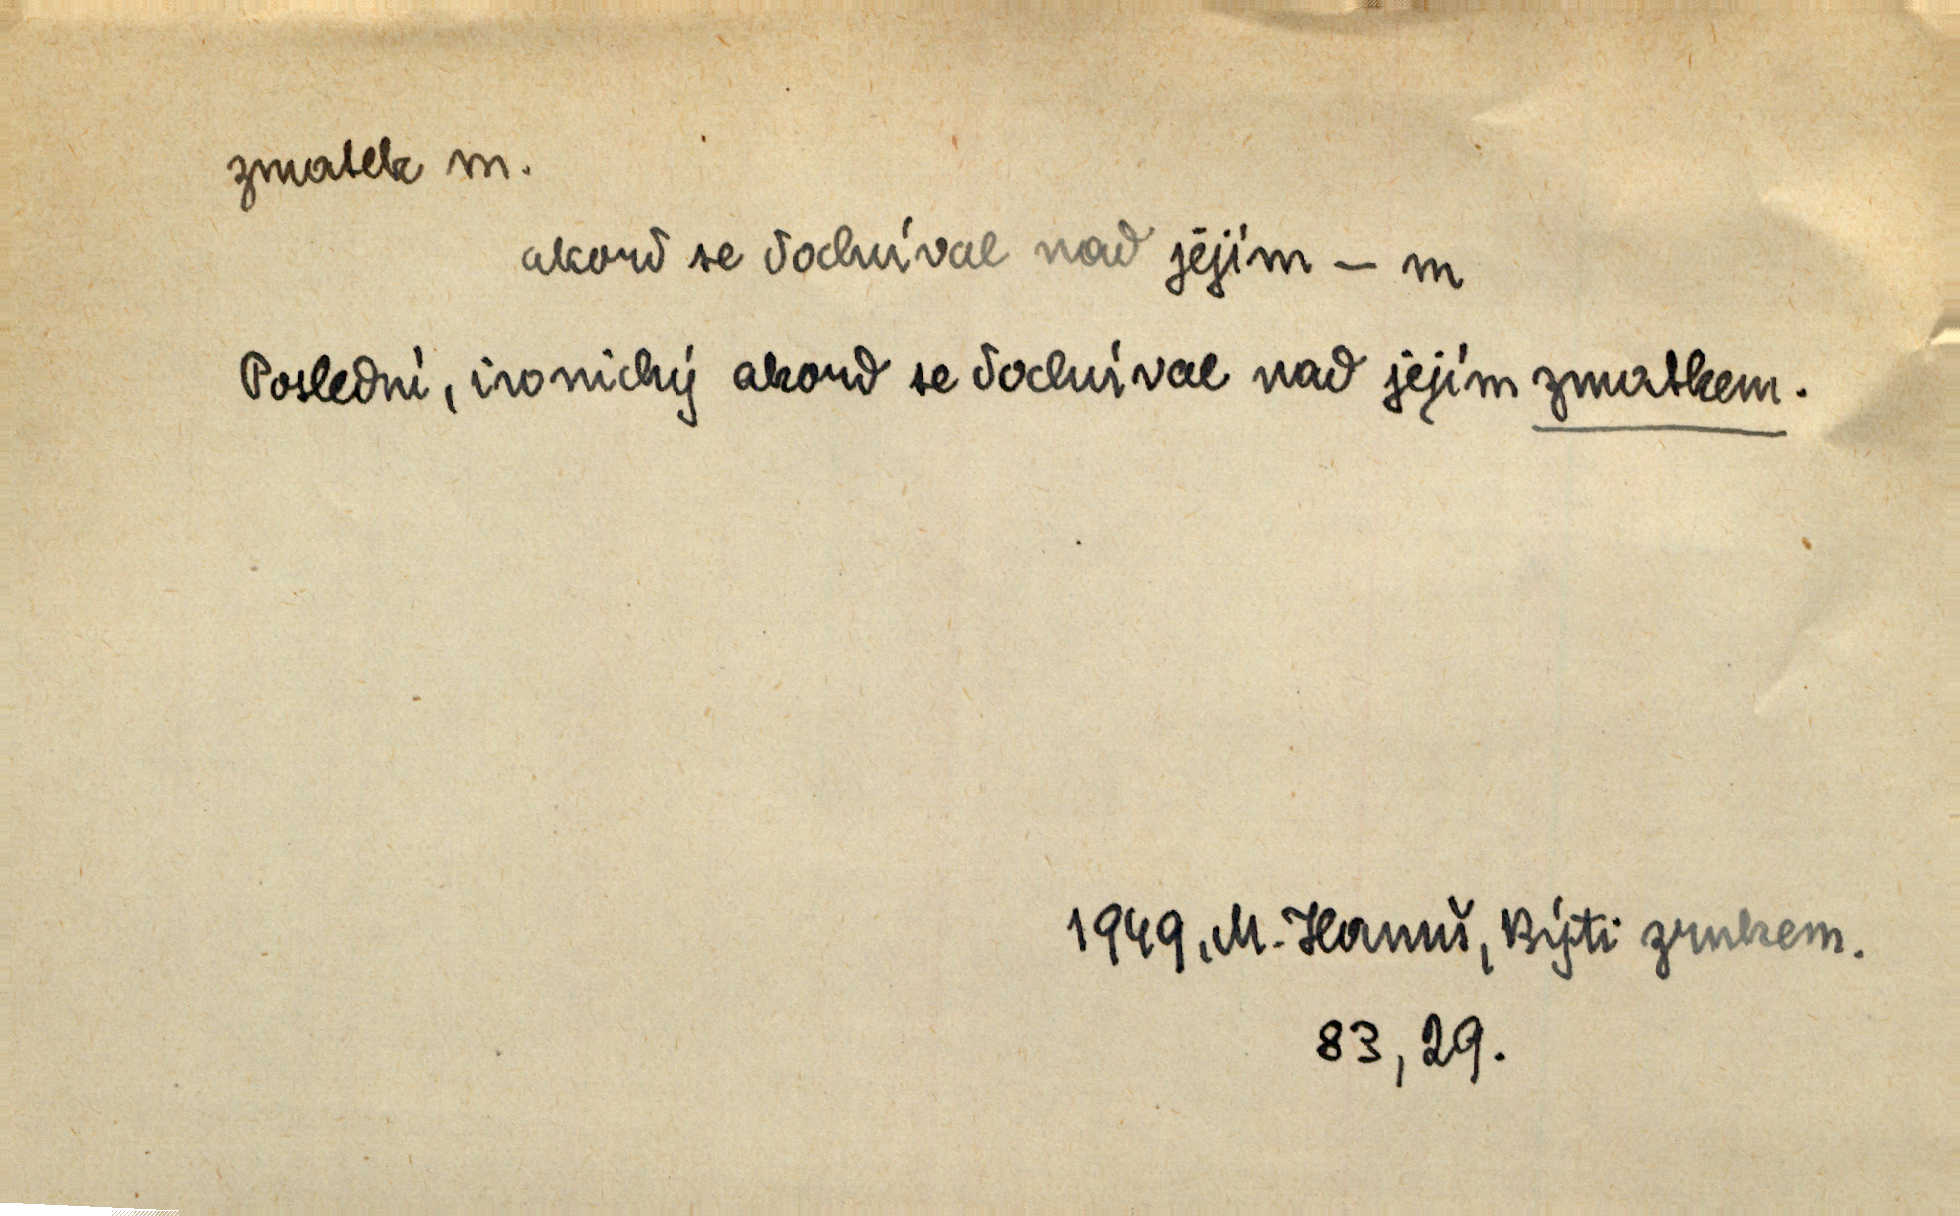 zmatek m.
akord se dochvíval nad jejím – m
Poslední, ironický akord se dochvíval nad jejím zmatkem.
1949, M. Hanuš, Býti zvukem.
83, 29.